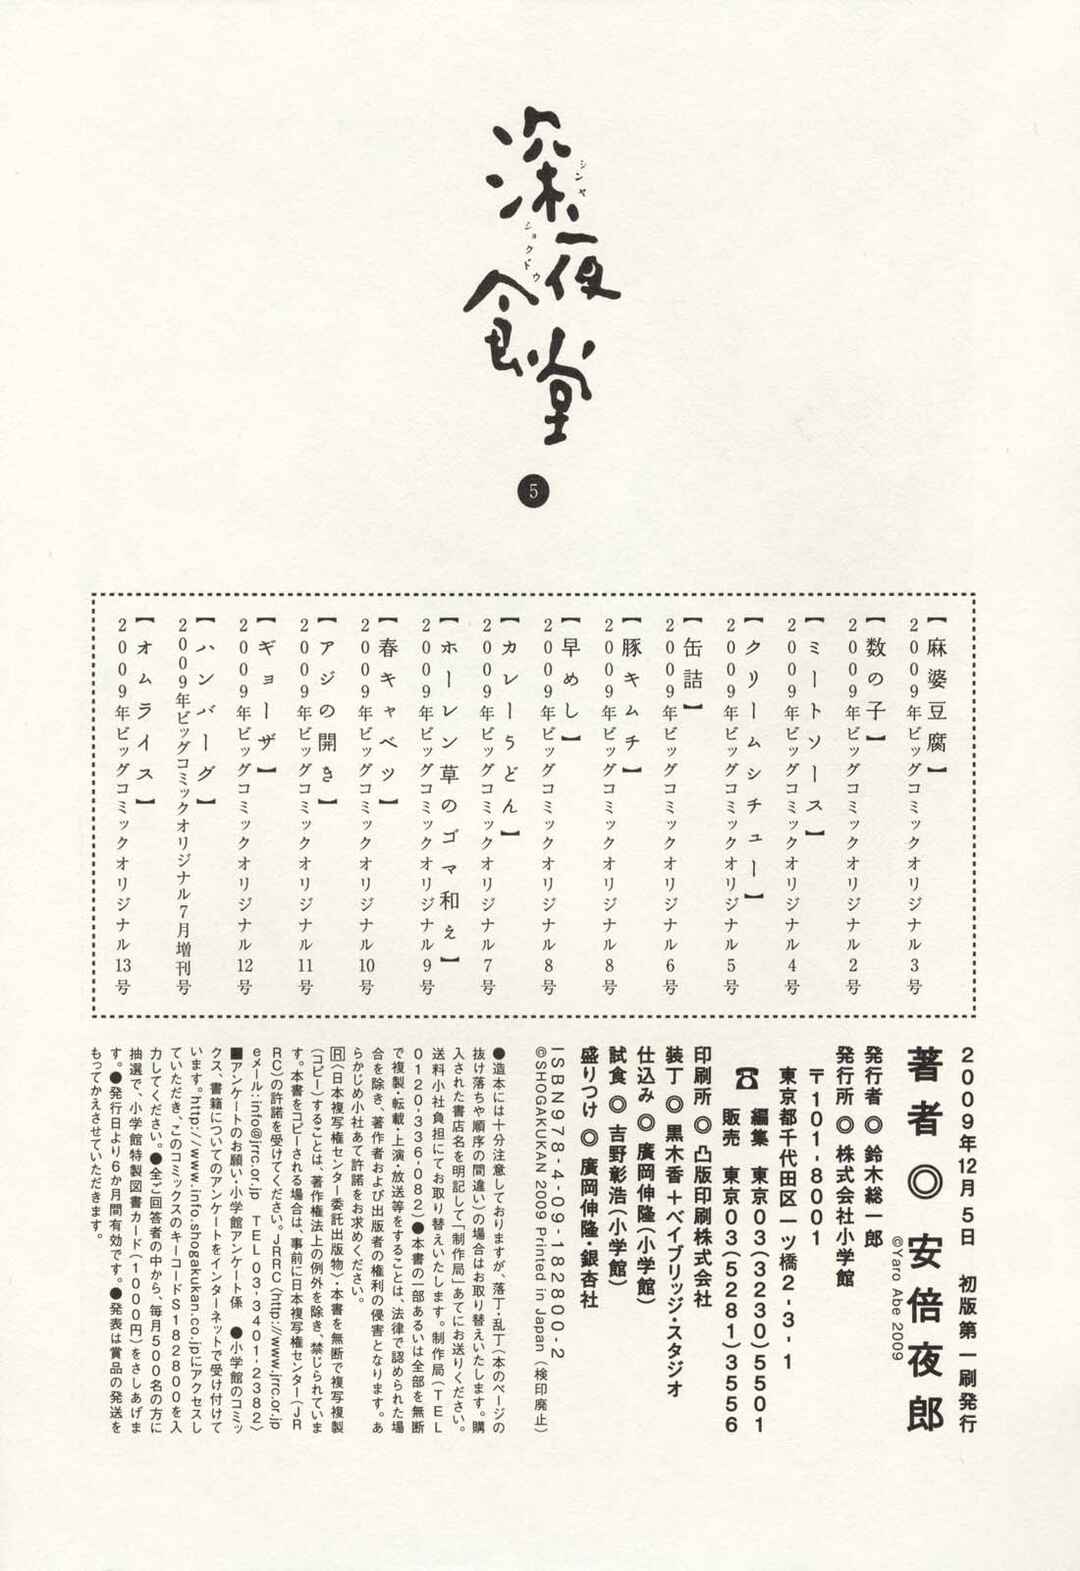 深夜食堂
シンヤ
ショクドウ
5
【麻婆豆腐】
2009年ビッグコミックオリジナル3号
【数の子】
2009年ビッグコミックオリジナル2号
【ミートソース】
2009年ビッグコミックオリジナル4号
【クリームシチュー】
2009年ビッグコミックオリジナル5号
【缶詰】
2009年ビッグコミックオリジナル6号
【豚キムチ】
2009年ビッグコミックオリジナル8号
【早めし】
2009年ビッグコミックオリジナル8号
【カレーうどん】
2009年ビッグコミックオリジナル7号
【ホーレン草のゴマ和え】
2009年ビッグコミックオリジナル9号
【春キャベツ】
2009年ビッグコミックオリジナル10号
【アジの開き】
2009年ビッグコミックオリジナル11号
【ギョーザ】
2009年ビッグコミックオリジナル12号
【ハンバーグ】
2009年ビッグコミックオリジナル7月増刊号
【オムライス】
2009年ビッグコミックオリジナル13号
2009年12月5日 初版第一刷発行
著者◎安倍夜郎
©Yaro Abe 2009
発行者◎鈴木総一郎
発行所◎株式会社小学館
〒101-8001
東京都千代田区一ツ橋2-3-1
☎ 編集 東京03(3230)5501
販売 東京03(5281)3556
印刷所◎凸版印刷株式会社
装丁◎黒木香+ベイブリッジ・スタジオ
仕込み◎廣岡伸隆(小学館)
試食◎吉野彰浩(小学館)
盛りつけ◎廣岡伸隆・銀杏社
ISBN978-4-09-182800-2
©SHOGAKUKAN 2009 Printed in Japan (検印廃止)
●造本には十分注意しておりますが、落丁・乱丁(本のページの
抜け落ちや順序の間違い)の場合はお取り替えいたします。購
入された書店名を明記して「制作局」あてにお送りください。
送料小社負担にてお取り替えいたします。制作局(TEL
0120-336-082)●本書の一部あるいは全部を無断
で複製・転載・上演・放送等をすることは、法律で認められた場
合を除き、著作者および出版者の権利の侵害となります。あ
らかじめ小社あて許諾をお求めください。
R(日本複写権センター委託出版物)・本書を無断で複写複製
(コピー)することは、著作権法上の例外を除き、禁じられていま
す。本書をコピーされる場合は、事前に日本複写権センター(JR
RC)の許諾を受けてください。JRRC(http://www.jrrc.or.jp
eメール:info@jrrc.or.jp TEL03-3401-2382)
■アンケートのお願い・小学館アンケート係 ●小学館のコミッ
クス、書籍についてのアンケートをインターネットで受け付けて
います。http://www.info.shogakukan.co.jpにアクセスし
ていただき、このコミックスのキーコードS182800を入
力してください。●全ご回答者の中から、毎月500名の方に
抽選で、小学館特製図書カード(1000円)をさしあげま
す。●発行日より6か月間有効です。●発表は賞品の発送を
もってかえさせていただきます。